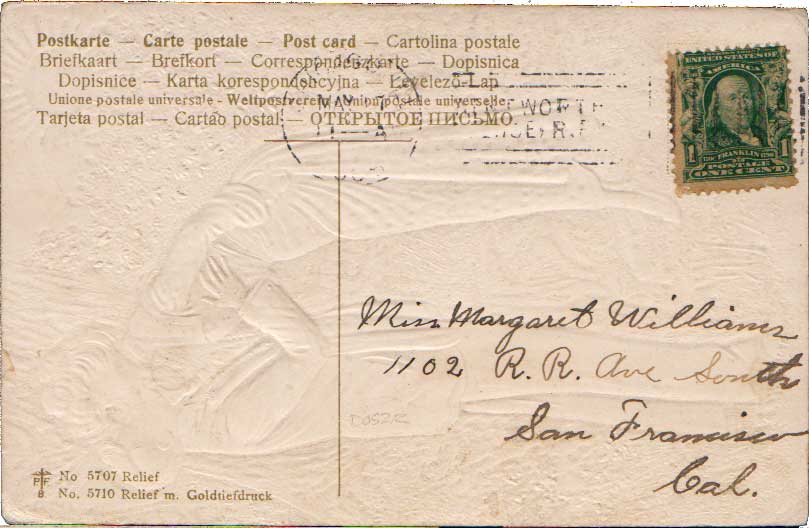 Postkarte — Carte postale — Post card — Cartolina postale
Briefkaart — Brefkort — Correspondenzkarte — Dopisnica
Dopisnice — Karta korespondencyjna — Levelező-Lap
Unione postale universale - Weltpostverein - Union postale universelle
Tarjeta postal — Cartão postal — ОТКРЫТОЕ ПИСЬМО.
MAY
UNITED STATES OF
AMERICA
1 FRANKLIN 1
POSTAGE
ONE CENT
Miss Margaret Williams
1102 R. R. Ave South
San Francisco
Cal.
PF
B
No 5707 Relief
No. 5710 Relief m. Goldtiefdruck